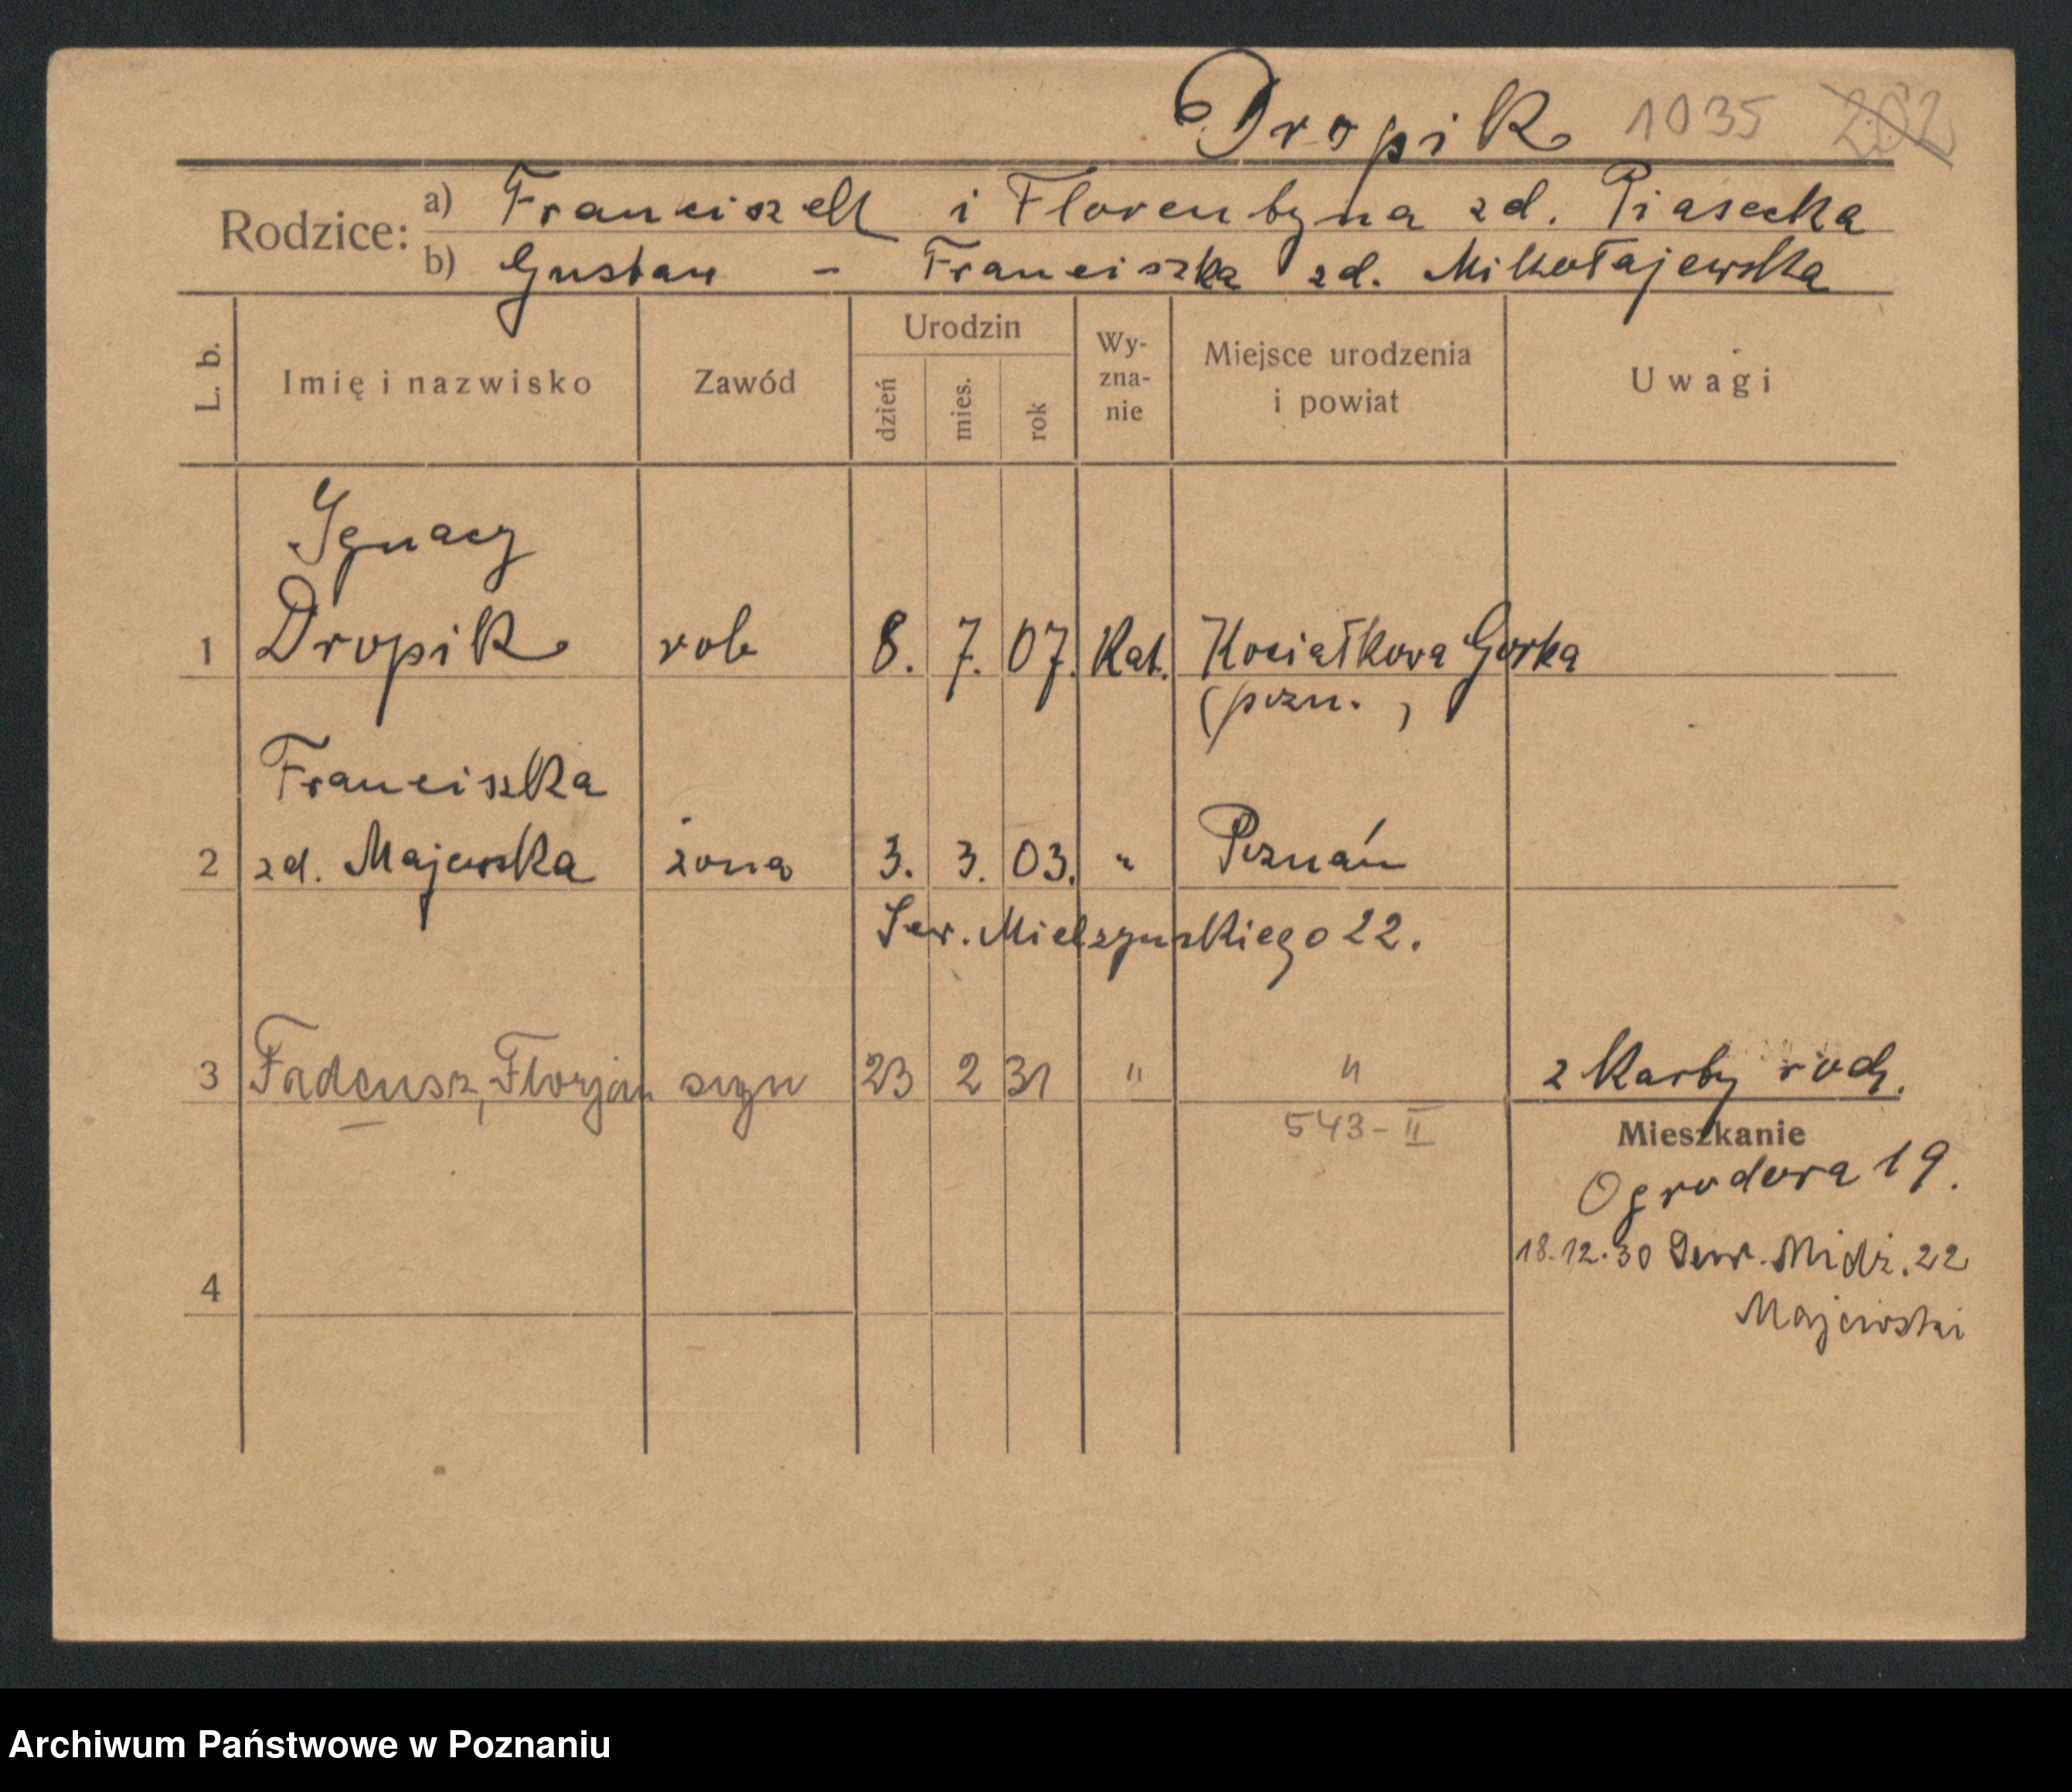 Dropik 1035 202
Rodzice: a) Franciszek i Florentyna zd. Piasecka
b) Gustaw - Franciszka zd. Mikołajewska
L. b.
Imię i nazwisko
Zawód
Urodzin
dzień
mies.
rok
Wy-
zna-
nie
Miejsce urodzenia
i powiat
Uwagi
Ignacy
1 Dropik rob 8. 7. 07. Kat. Kociałkowa Gorka
(pozn.)
Franciszka
2 zd. Majewska żona 3. 3. 03. " Poznań
Sew. Mielżynskiego 22.
3 Tadeusz, Florjan syn 23 2 31 " " z Karty rodz.
543-II
Mieszkanie
Ogrodowa 19.
18.12.30 Sew. Mielż. 22
4
Majewski
Archiwum Państwowe w Poznaniu